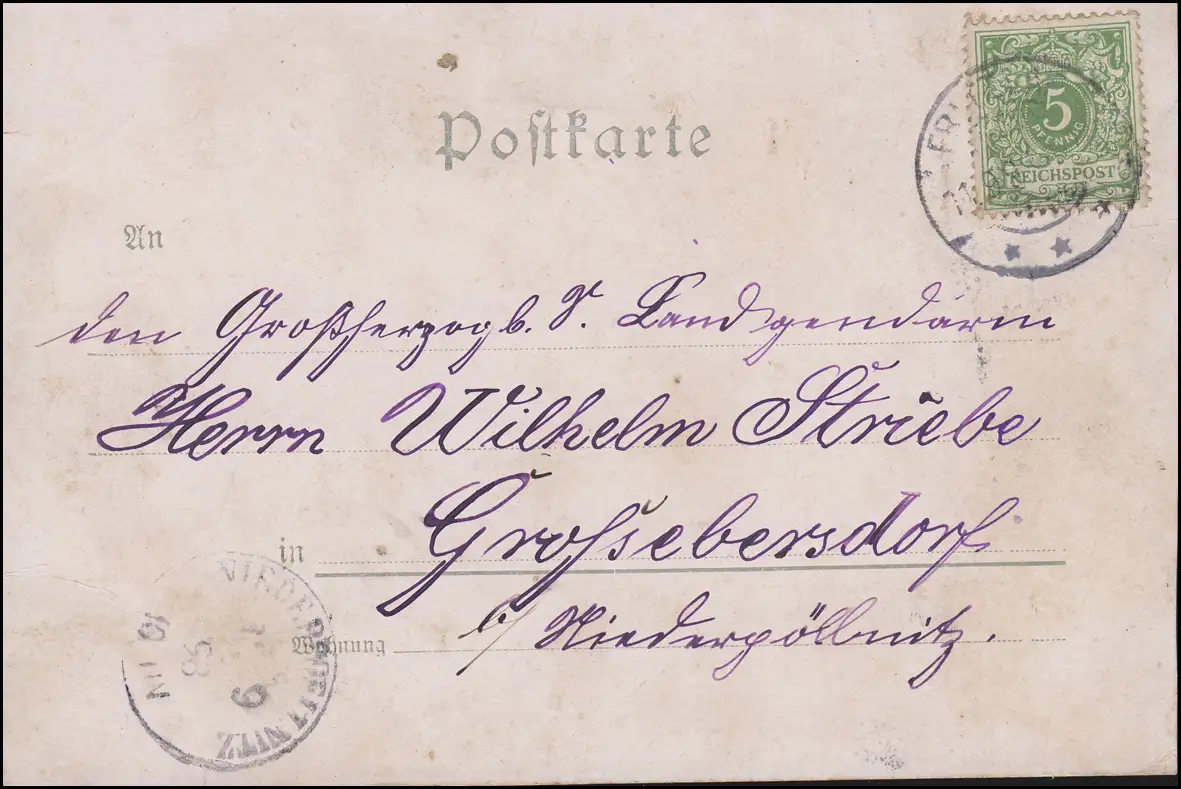 5
PFENNIG
REICHSPOST
Postkarte
An
den Großherzogl. S. Landgendarm
Herrn Wilhelm Striebe
in Grossebersdorf
Wohnung b/ Niederpöllnitz.
NIEDERPÖLLNITZ
98